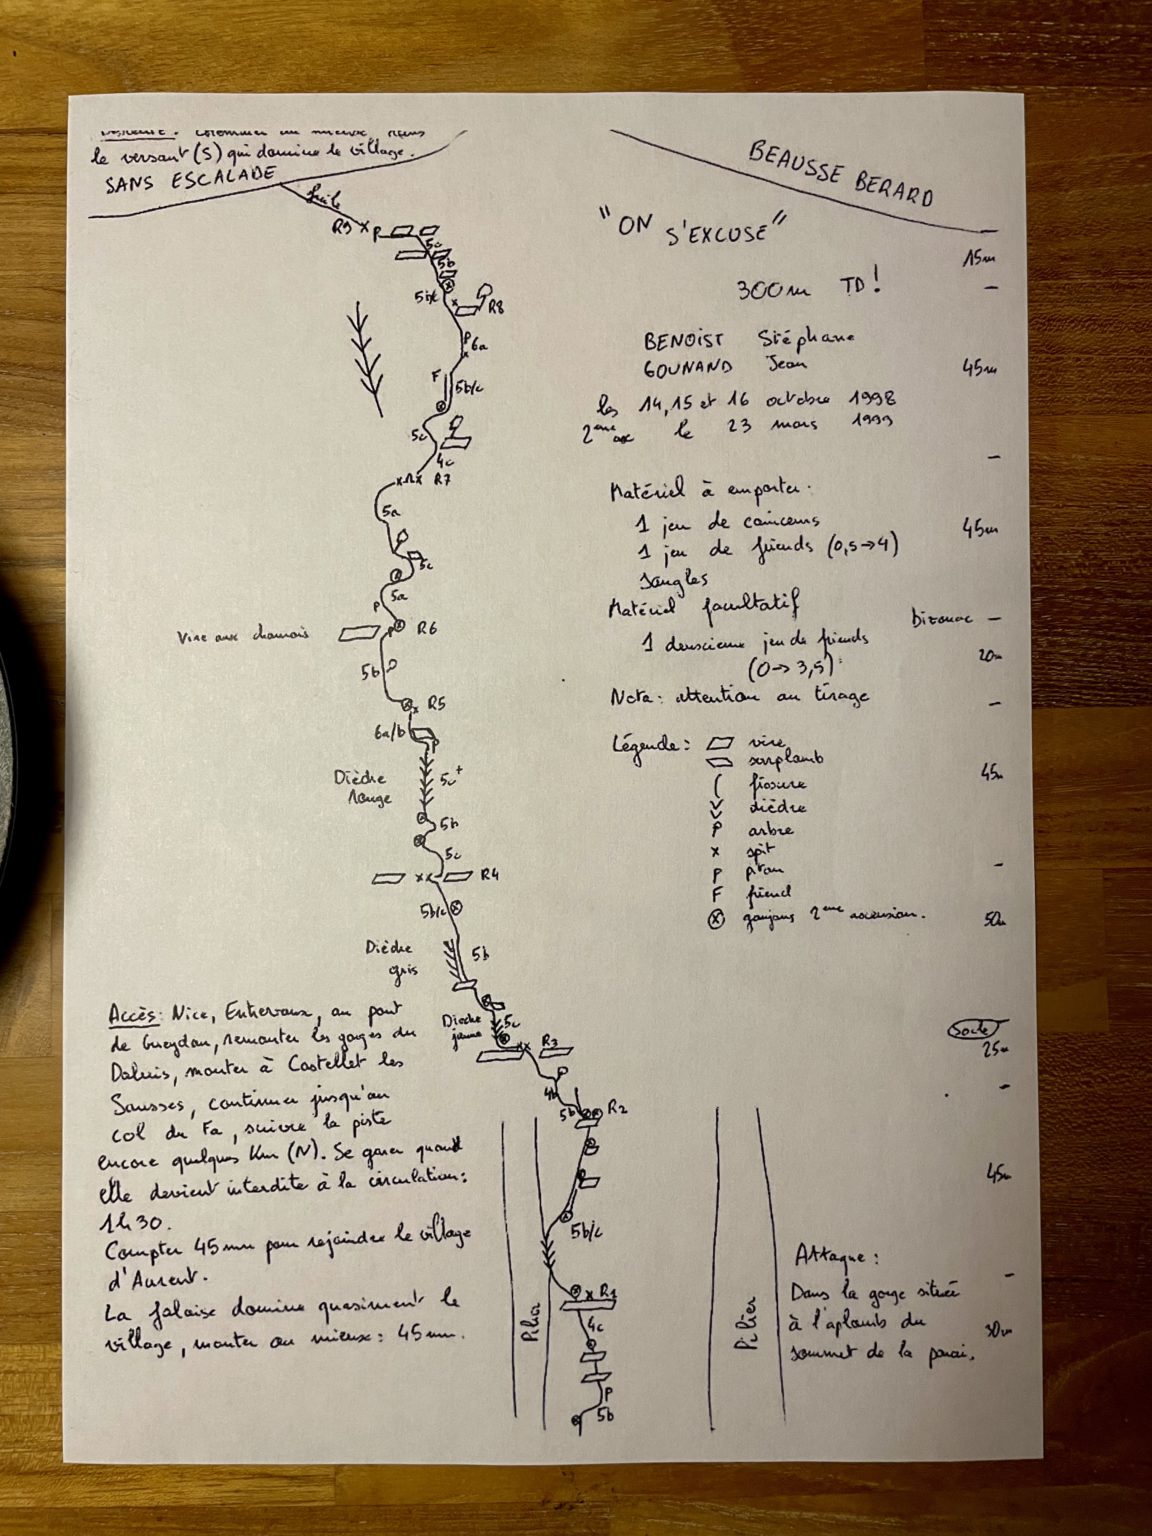 le versant (S) qui domine le village.
SANS ESCALADE
facile
BEAUSSE BERARD
"ON S'EXCUSE"
300m TD!
BENOIST Stéphane
GOUNAND Jean
les 14, 15 et 16 octobre 1998
2ème le 23 mars 1999
Matériel à emporter.
1 jeu de coinceurs
1 jeu de friends (0,5→4)
sangles
Matériel facultatif
1 deuxième jeu de friends
(0→3,5).
Nota: attention au tirage
Légende:
vire
surplomb
fissure
dièdre
arbre
x spit
P piton
F friend
goujons 2ème ascension.
R9
P
5c
5b
5b/c
R8
P
6a
F
5b/c
5c
4c
R7
5a
5c
5a
P
Vire aux chamois
P
R6
5b
R5
6a/b
P
Dièdre
rouge
5c+
5b
5c
R4
5b/c
Dièdre
gris
5b
Dièdre
jaune
5c
R3
4b
5b
R2
5b/c
R1
4c
P
5b
Pilier
Pilier
15m
45m
45m
Bivouac
20m
45m
50m
Socle
25m
45m
30m
Accès: Nice, Entrevaux, au pont
de Gueydan, remonter les gorges du
Daluis, monter à Castellet les
Sausses, continuer jusqu'au
col du Fa, suivre la piste
encore quelques Km (N). Se garer quand
elle devient interdite à la circulation:
1h30.
Compter 45mn pour rejoindre le village
d'Aurent.
La falaise domine quasiment le
village, monter au mieux: 45mn.
Attaque:
Dans la gorge située
à l'aplomb du
sommet de la paroi.